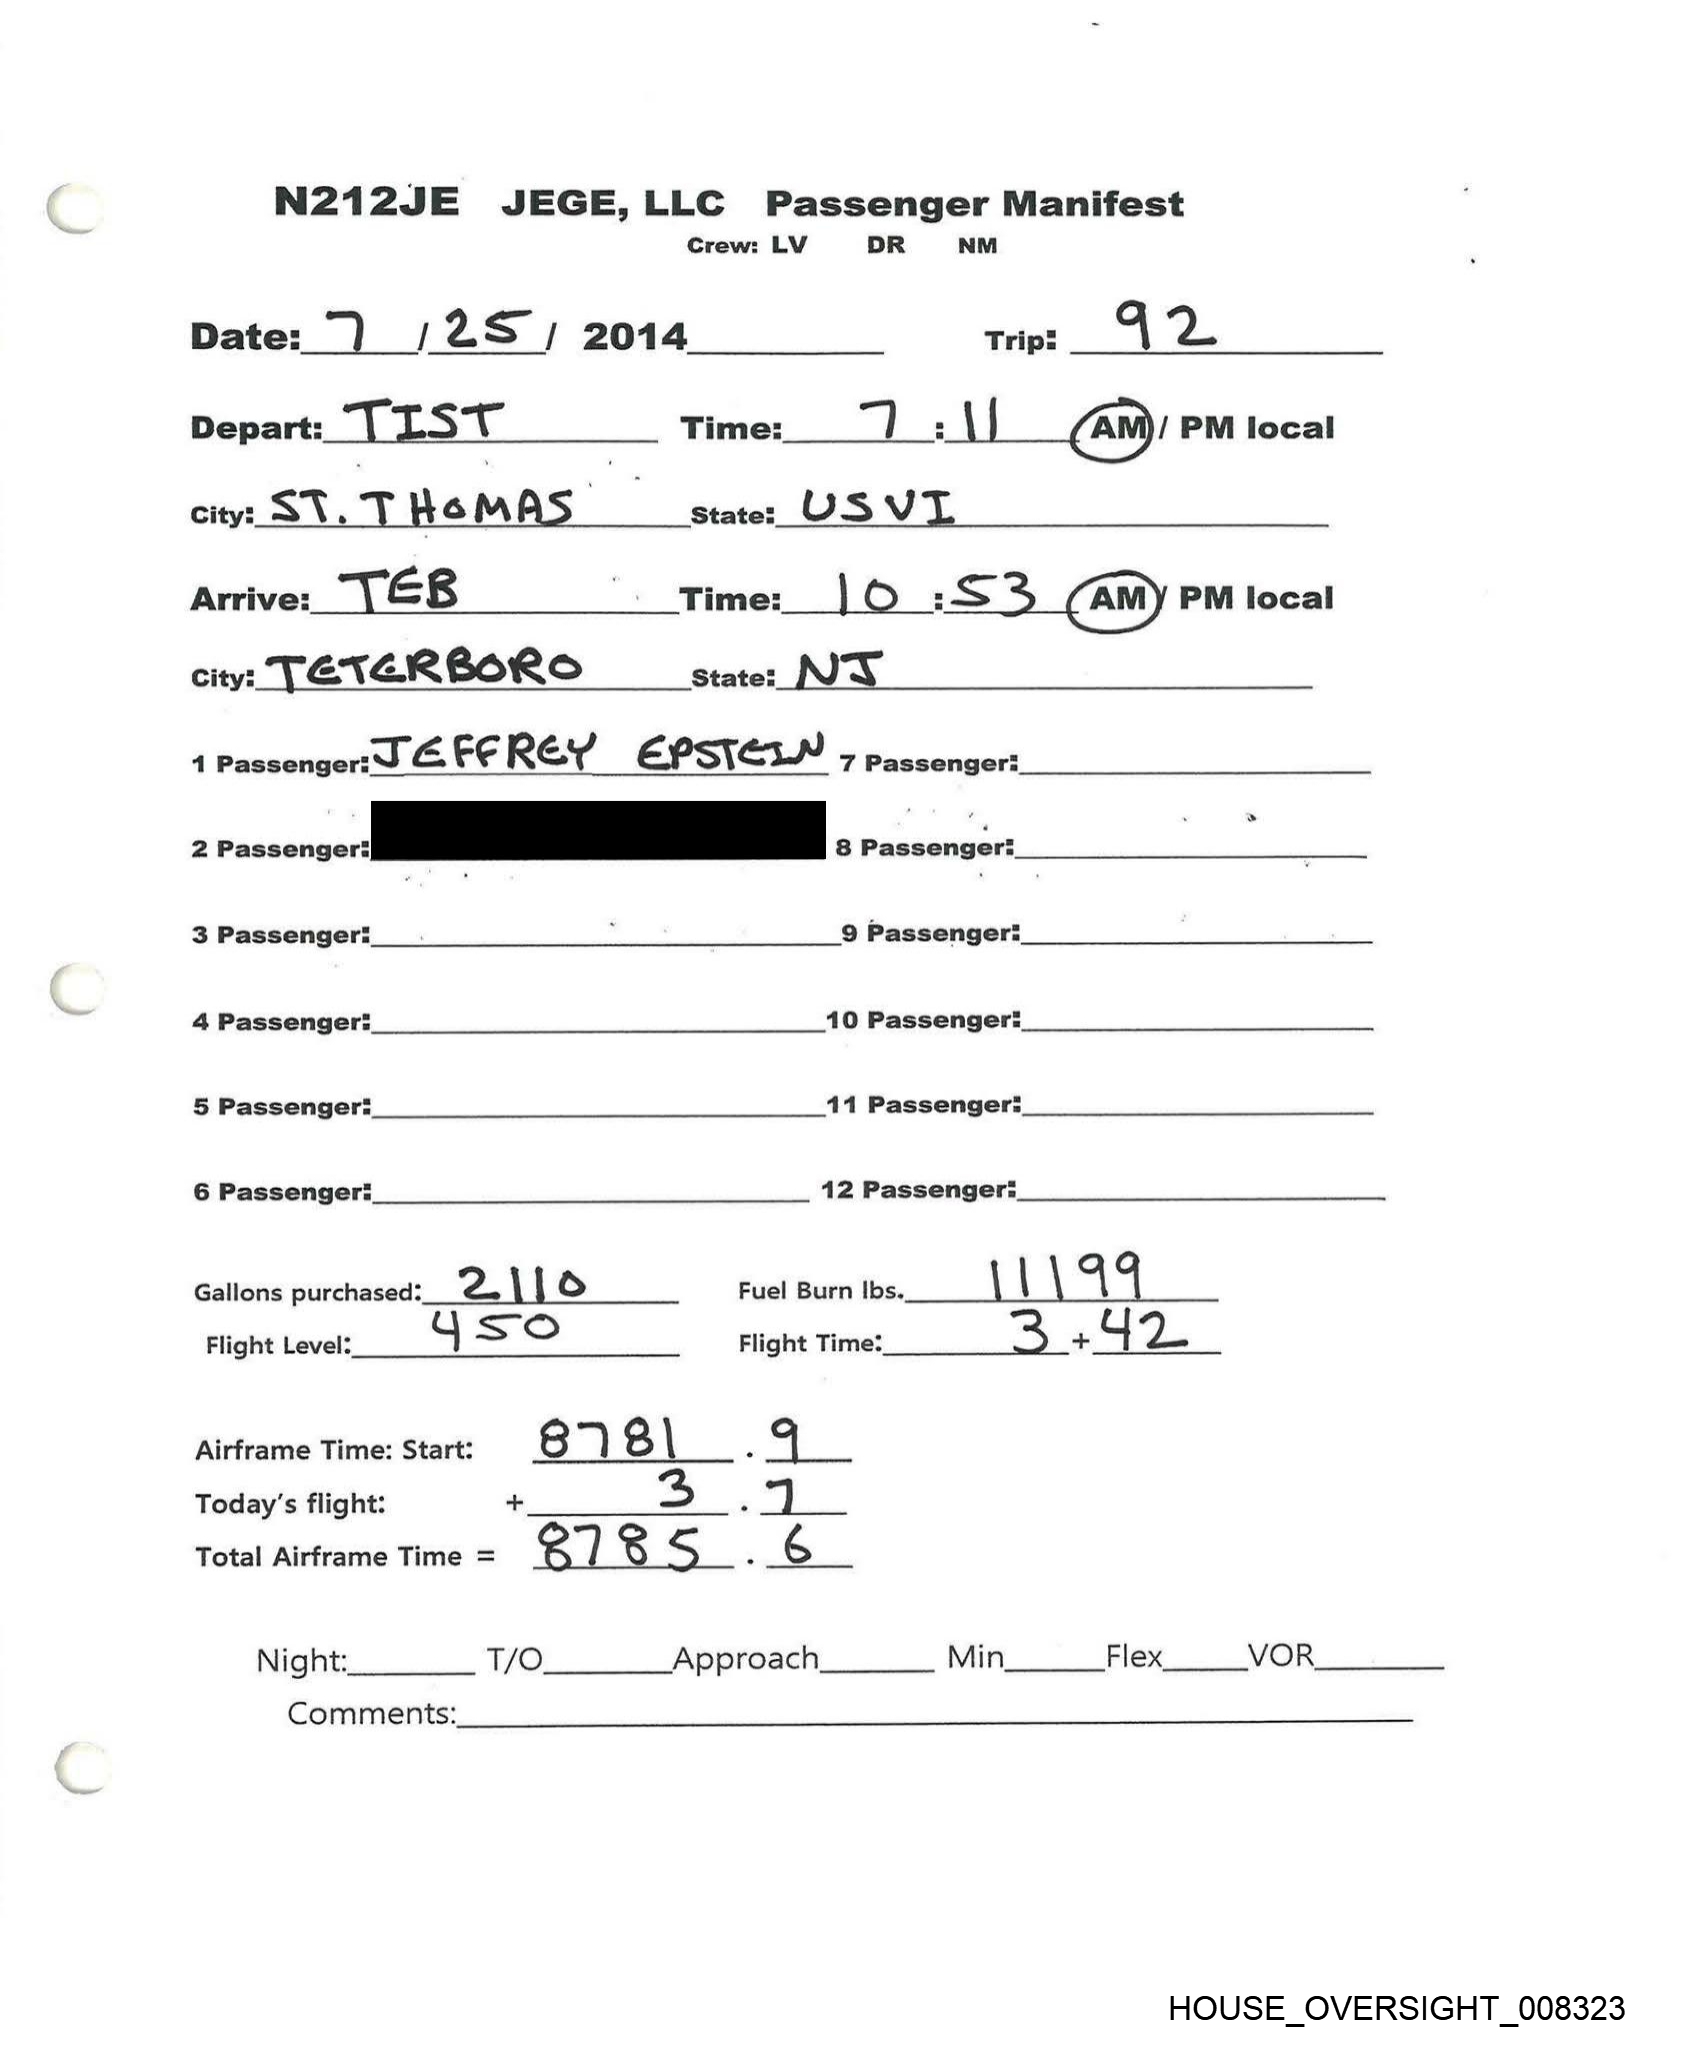 N212JE JEGE, LLC Passenger Manifest
Crew: LV DR NM
Date: 7 / 25 / 2014 Trip: 92
Depart: TIST Time: 7 : 11 AM / PM local
City: ST. THOMAS State: USVI
Arrive: TEB Time: 10 : 53 AM / PM local
City: TETERBORO State: NJ
1 Passenger: JEFFREY EPSTEIN 7 Passenger:
2 Passenger: 8 Passenger:
3 Passenger: 9 Passenger:
4 Passenger: 10 Passenger:
5 Passenger: 11 Passenger:
6 Passenger: 12 Passenger:
Gallons purchased: 2110 Fuel Burn lbs. 11199
Flight Level: 450 Flight Time: 3 + 42
Airframe Time: Start: 8781 . 9
Today's flight: + 3 . 7
Total Airframe Time = 8785 . 6
Night: T/O Approach Min Flex VOR
Comments:
HOUSE_OVERSIGHT_008323